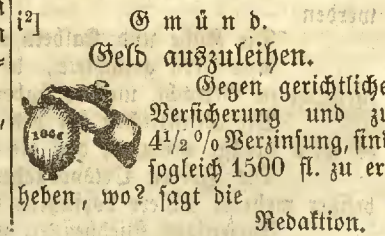 i²] Gmünd.
Geld auszuleihen.
Gegen gerichtliche
Versicherung und zu
4½ % Verzinsung, sind
sogleich 1500 fl. zu er
heben, wo? sagt die
Redaktion.